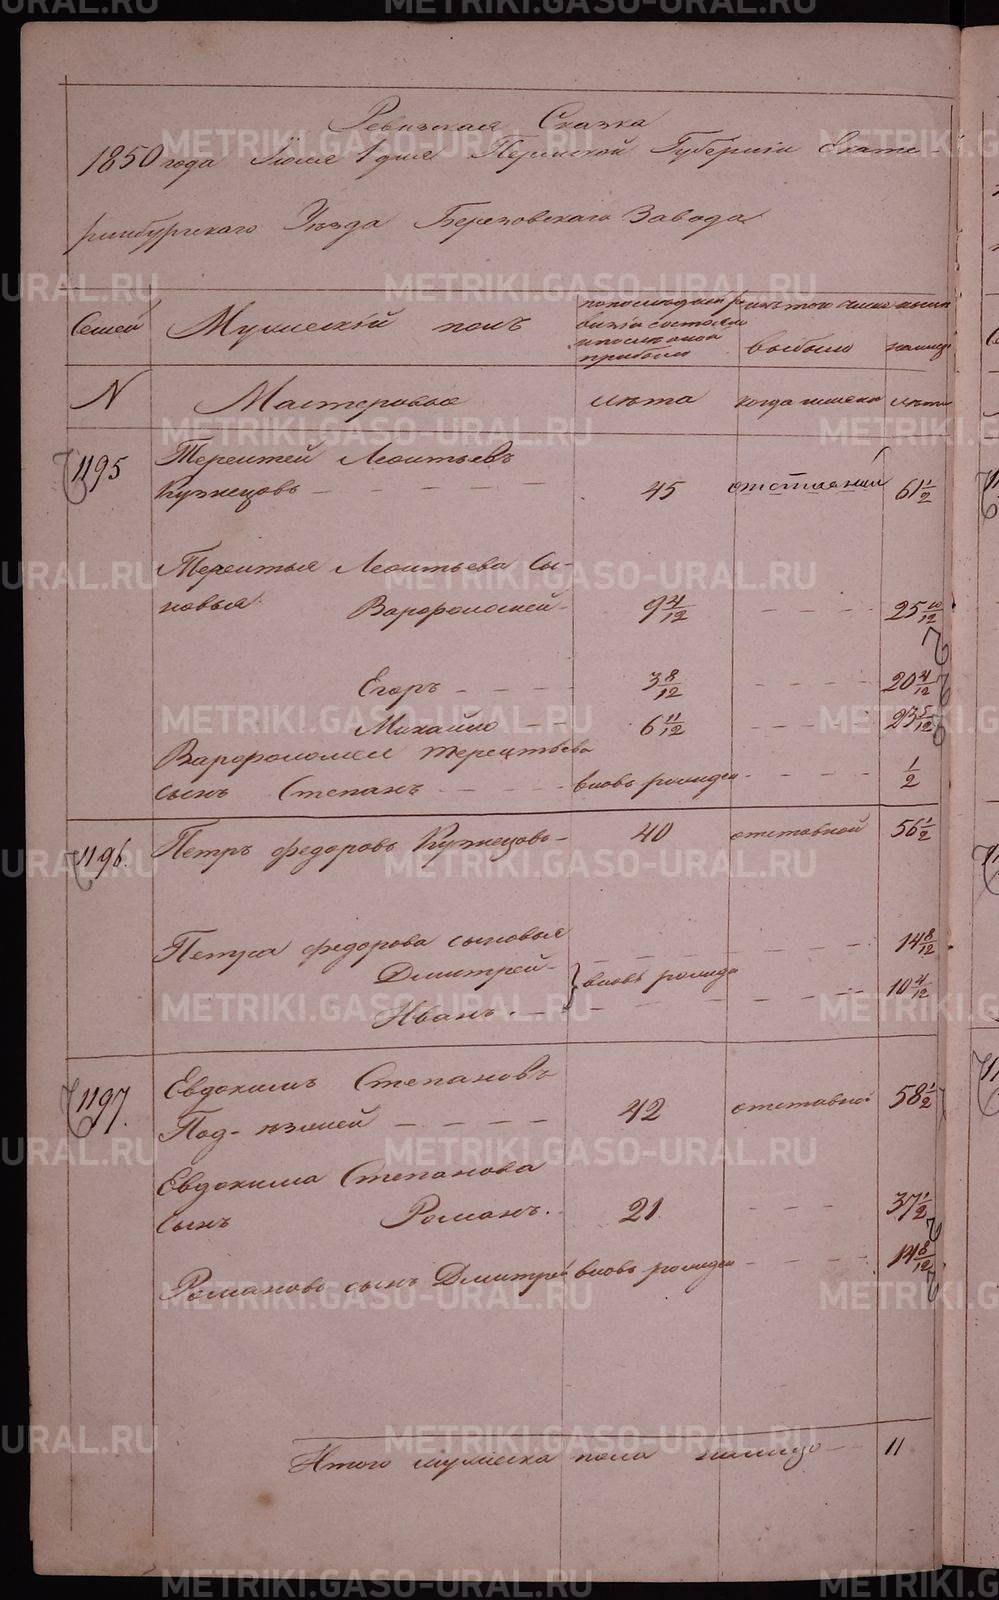 Ревизская Сказка
1850 года Июля 1 дня Пермской Губернiи Екате
ринбургскаго Уѣзда Березовскаго Завода
Семей Мужескiй полъ по последней ре визiи состояло и после оной прибыло изъ того числа выбыло ныне налицо
N Мастеровые лѣта когда именно лѣта
1195 Терентей Леонтьевъ
Кузнецовъ 45 отставный 61 1/2
Терентья Леонтьева Сы-
новья Варфоломей 9 4/12 25 10/12
Егоръ 3 8/12 20 4/12
Михайло 6 11/12 23 5/12
Варфоломея Терентьева
сынъ Степанъ вновь рожден 1/2
1196. Петръ Федоровъ Кузнецовъ 40 отставной 56 1/2
Петра Федорова сыновья
Дмитрей 14 8/12
вновь рожде
Иванъ. 10 4/12
1197. Евдокимъ Степановъ
Под- 42 отставной 58 1/2
Евдокима Степанова
сынъ Романъ. 21 37 1/2
Романовъ сынъ Дмитрей вновь рожден 14 8/12
Итого мужеска пола налицо 11
METRIKI.GASO-URAL.RU